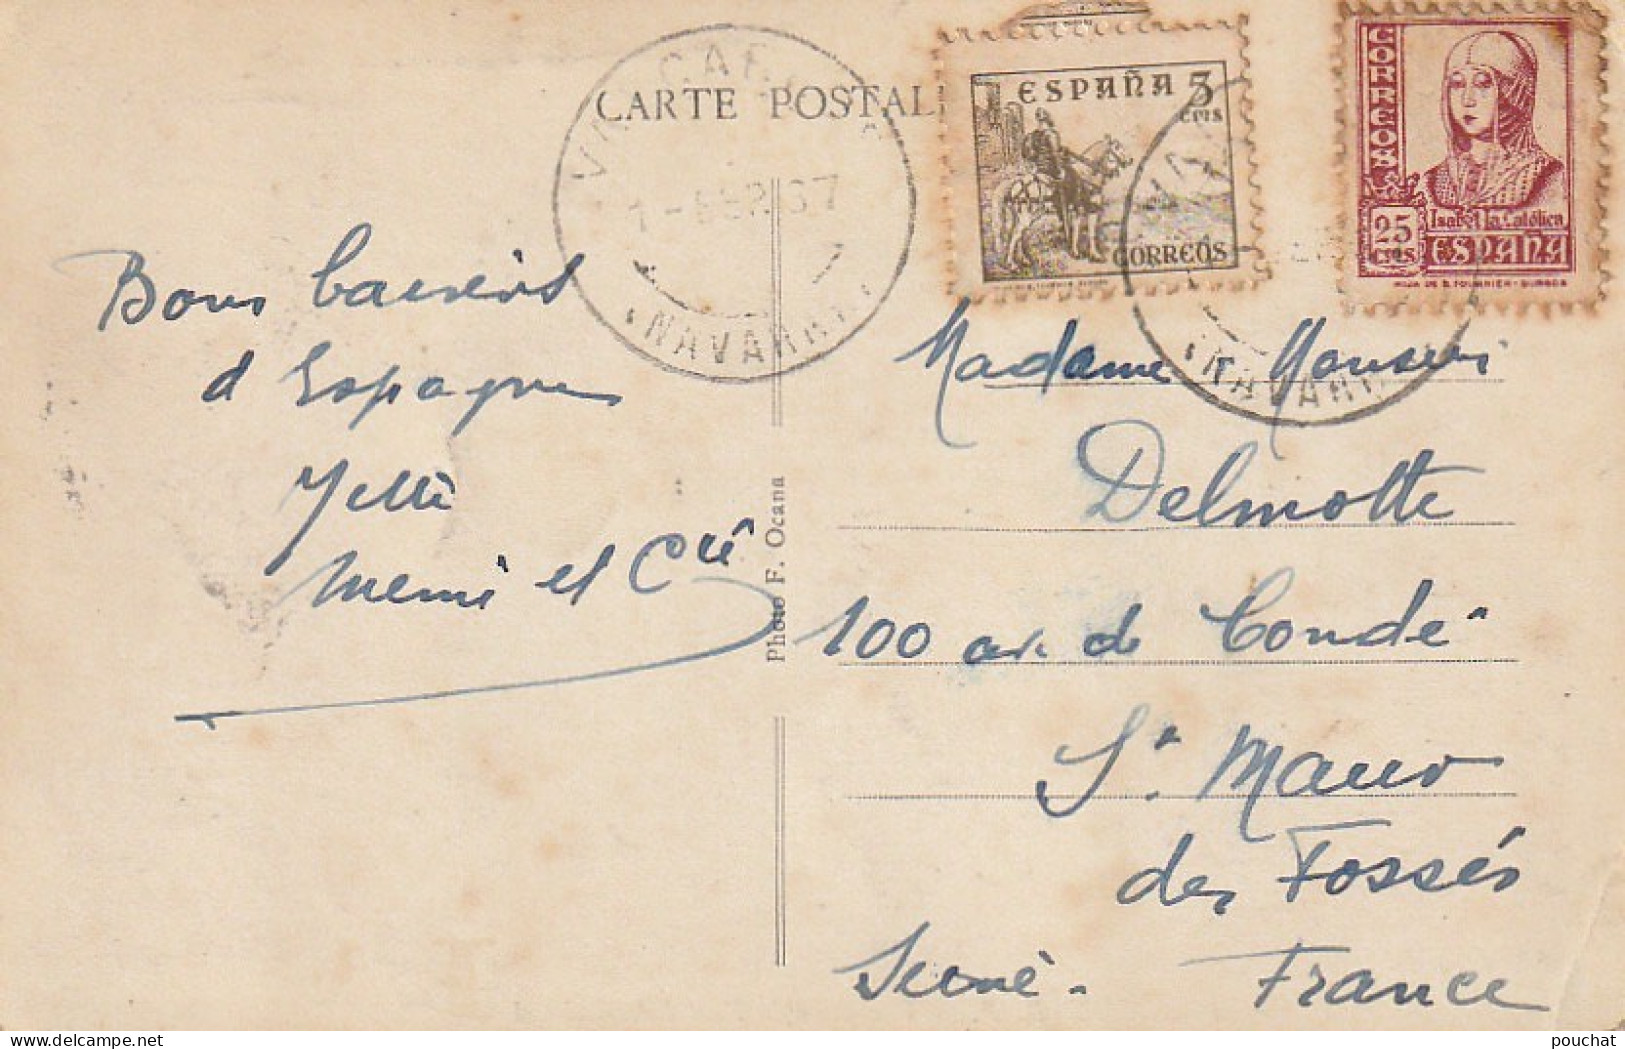 CARTE POSTALE
ESPAÑA 5
CTS
CORREOS
CORREOS
25
CTS
Isabel la Católica
ESPAÑA
HIJA DE B. FOURNIER - BURGOS
VALCARLOS
1 - SEP. 37
(NAVARRA)
(NAVARRA)
Bons baisers
d'Espagne
Mémé et Cie
Photo F. Ocana
Madame
Delmotte
100 av. de Condé
St. Maur
des Fossés
Seine - France
pouchat delcampe.net